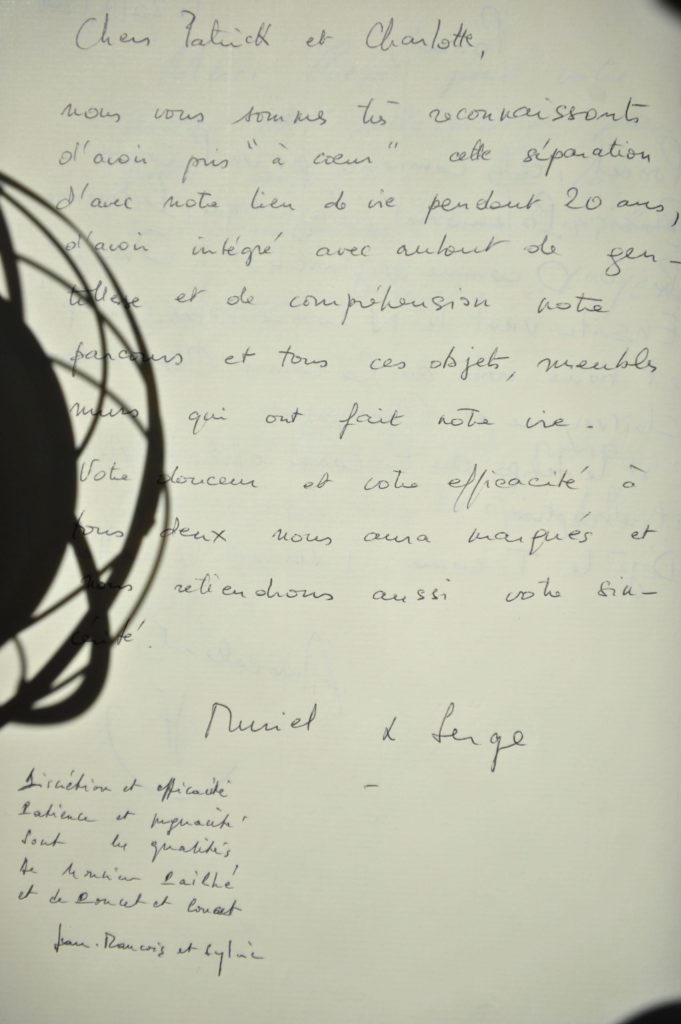 Chers Patrick et Charlotte,
nous vous sommes très reconnaissants
d'avoir pris "à coeur" cette séparation
d'avec notre lieu de vie pendant 20 ans,
d'avoir intégré avec autant de gen-
tillesse et de compréhension notre
parcours et tous ces objets, meubles
murs qui ont fait notre vie.
Votre douceur et votre efficacité à
tous deux nous aura marqués et
nous retiendrons aussi votre sin-
cérité.
Muriel & Serge
Discrétion et efficacité
Patience et pugnacité
Sont les qualités
De Monsieur
et de et
Jean-François et Sylvie